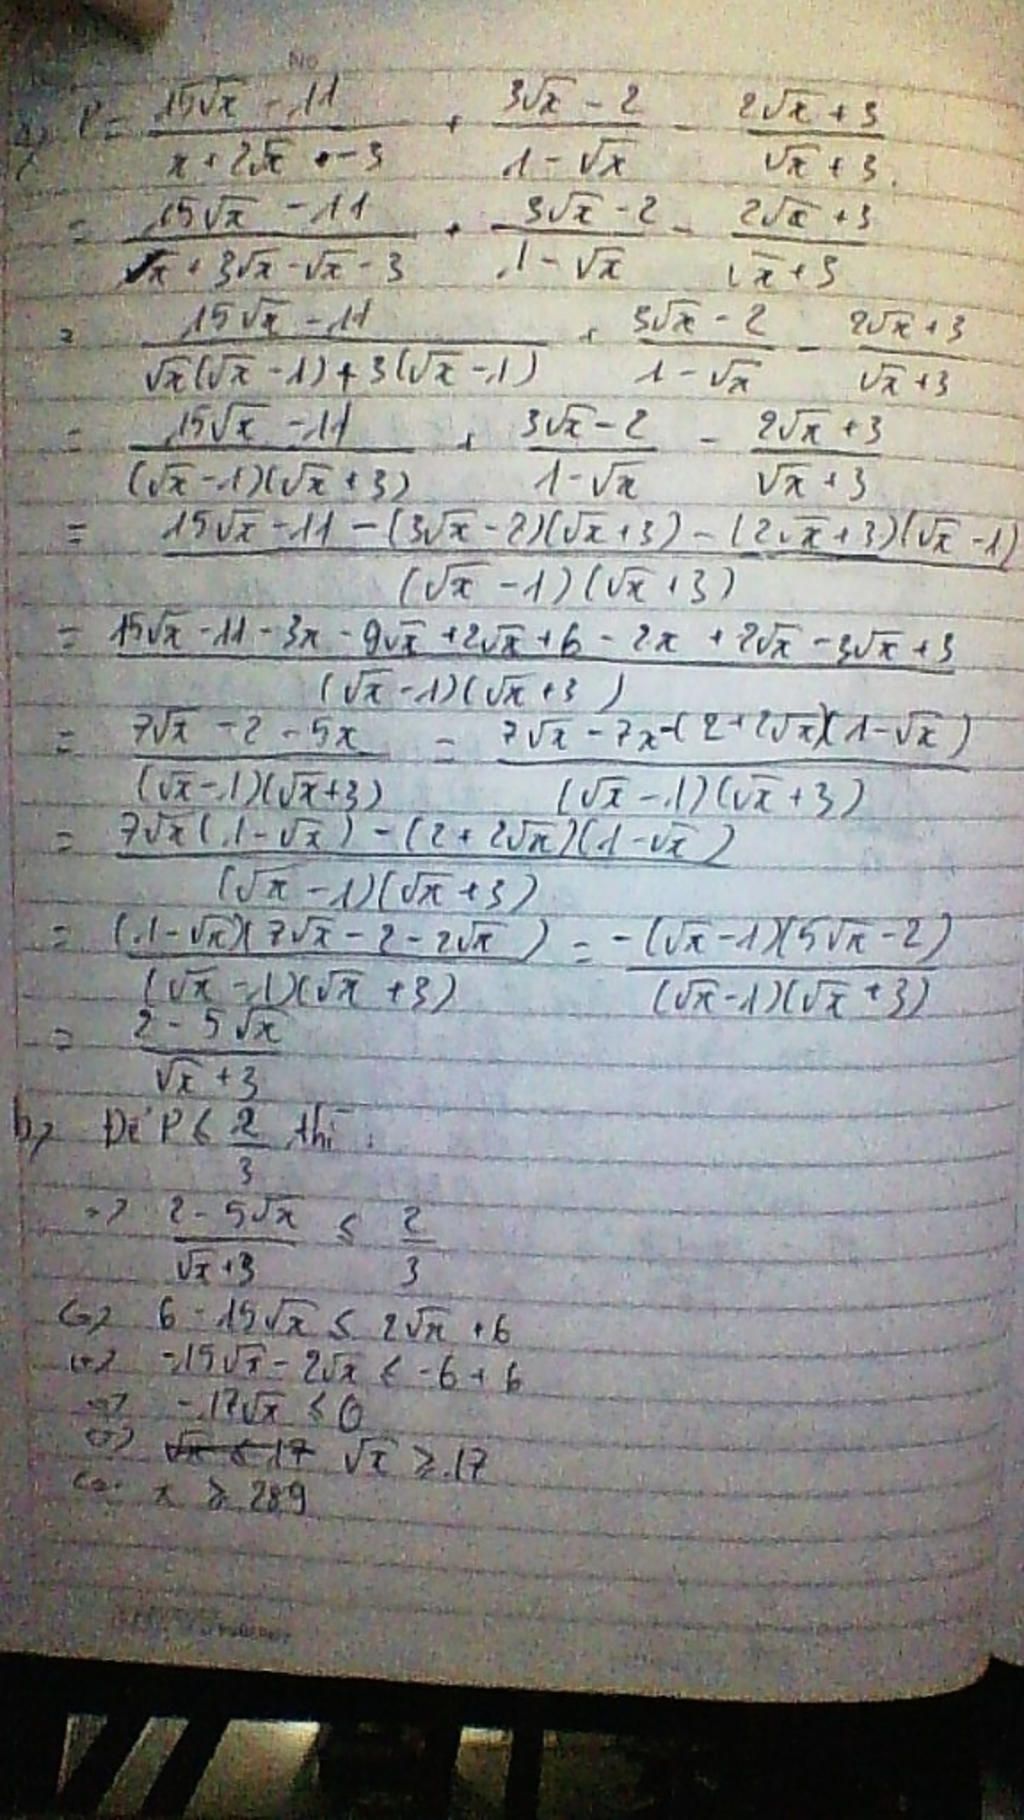 No
a) P = \frac{15√x - 11}{x + 2√x - 3} + \frac{3√x - 2}{1 - √x} - \frac{2√x + 3}{√x + 3}
= \frac{15√x - 11}{x + 3√x - √x - 3} + \frac{3√x - 2}{1 - √x} - \frac{2√x + 3}{√x + 3}
= \frac{15√x - 11}{√x(√x - 1) + 3(√x - 1)} + \frac{3√x - 2}{1 - √x} - \frac{2√x + 3}{√x + 3}
= \frac{15√x - 11}{(√x - 1)(√x + 3)} + \frac{3√x - 2}{1 - √x} - \frac{2√x + 3}{√x + 3}
= \frac{15√x - 11 - (3√x - 2)(√x + 3) - (2√x + 3)(√x - 1)}{(√x - 1)(√x + 3)}
= \frac{15√x - 11 - 3x - 9√x + 2√x + 6 - 2x + 2√x - 3√x + 3}{(√x - 1)(√x + 3)}
= \frac{7√x - 2 - 5x}{(√x - 1)(√x + 3)} = \frac{7√x - 7x - (2 + 2√x)(1 - √x)}{(√x - 1)(√x + 3)}
= \frac{7√x(1 - √x) - (2 + 2√x)(1 - √x)}{(√x - 1)(√x + 3)}
= \frac{(1 - √x)(7√x - 2 - 2√x)}{(√x - 1)(√x + 3)} = \frac{-(√x - 1)(5√x - 2)}{(√x - 1)(√x + 3)}
= \frac{2 - 5√x}{√x + 3}
b) Để P ≤ \frac{2}{3} thì :
=> \frac{2 - 5√x}{√x + 3} ≤ \frac{2}{3}
<=> 6 - 15√x ≤ 2√x + 6
<=> -15√x - 2√x ≤ -6 + 6
<=> -17√x ≤ 0
<=> √x ≤ 17 √x ≥ 17
<=> x ≥ 289